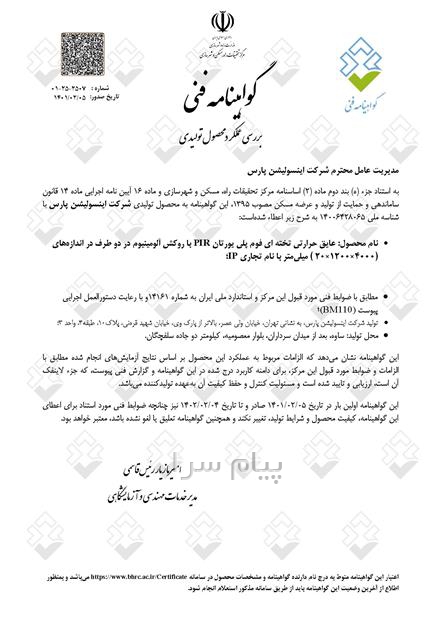 جمهوری اسلامی ایران
وزارت راه و شهرسازی
مرکز تحقیقات راه، مسکن و شهرسازی
شماره : ۰۱-۲۵-۲۵۰۷
تاریخ صدور: ۱۴۰۱/۰۲/۰۵
گواهینامه فنی
گواهینامه فنی
بررسی عملکرد محصول تولیدی
مدیریت عامل محترم شرکت اینسولیشن پارس
به استناد جزء (ه) بند دوم ماده (۲) اساسنامه مرکز تحقیقات راه، مسکن و شهرسازی و ماده ۱۶ آیین نامه اجرایی ماده ۱۴ قانون
ساماندهی و حمایت از تولید و عرضه مسکن مصوب ۱۳۹۵، این گواهینامه به محصول تولیدی شرکت اینسولیشن پارس با
شناسه ملی ۱۴۰۰۶۴۲۸۰۶۵ به شرح زیر اعطاء شده‌است:
• نام محصول: عایق حرارتی تخته ای فوم پلی یورتان PIR با روکش آلومینیوم در دو طرف در اندازه‌های
(۴۰۰۰×۱۲۰۰×۲۰) میلی‌متر با نام تجاری IP؛
• مطابق با ضوابط فنی مورد قبول این مرکز و استاندارد ملی ایران به شماره ۱۴۱۶۱و با رعایت دستورالعمل اجرایی
پیوست (BM110)؛
• تولید شرکت اینسولیشن پارس، به نشانی تهران، خیابان ولی عصر، بالاتر از پارک وی، خیابان شهید قرنی، پلاک۱۰، طبقه۳، واحد ۳؛
• محل تولید: ساوه، بعد از میدان سرداران، بلوار معصومیه، کیلومتر دو جاده سلفچگان.
این گواهینامه نشان می‌دهد که الزامات مربوط به عملکرد این محصول بر اساس نتایج آزمایش‌های انجام شده مطابق با
الزامات و ضوابط مورد قبول این مرکز، برای دامنه کاربرد درج شده در این گواهینامه و گزارش فنی پیوست، که جزء لاینفک
آن است، ارزیابی و تایید شده است و مسئولیت کنترل و حفظ کیفیت آن به‌عهده تولیدکننده می‌باشد.
این گواهینامه اولین بار در تاریخ ۱۴۰۱/۰۲/۰۵ صادر و تا تاریخ ۱۴۰۲/۰۲/۰۴ نیز چنانچه ضوابط فنی مورد استناد برای اعطای
این گواهینامه، کیفیت محصول و شرایط تولید، تغییر نکند و همچنین گواهینامه تعلیق یا لغو نشده باشد، معتبر خواهد بود.
امیر مازیار رئیس قاسمی
مدیر خدمات مهندسی و آزمایشگاهی
پیام سرا
اعتبار این گواهینامه منوط به درج نام دارنده گواهینامه و مشخصات محصول در سامانه https://www.bhrc.ac.ir/Certificate می‌باشد و بمنظور
اطلاع از آخرین وضعیت این گواهینامه باید از طریق سامانه مذکور استعلام انجام شود.